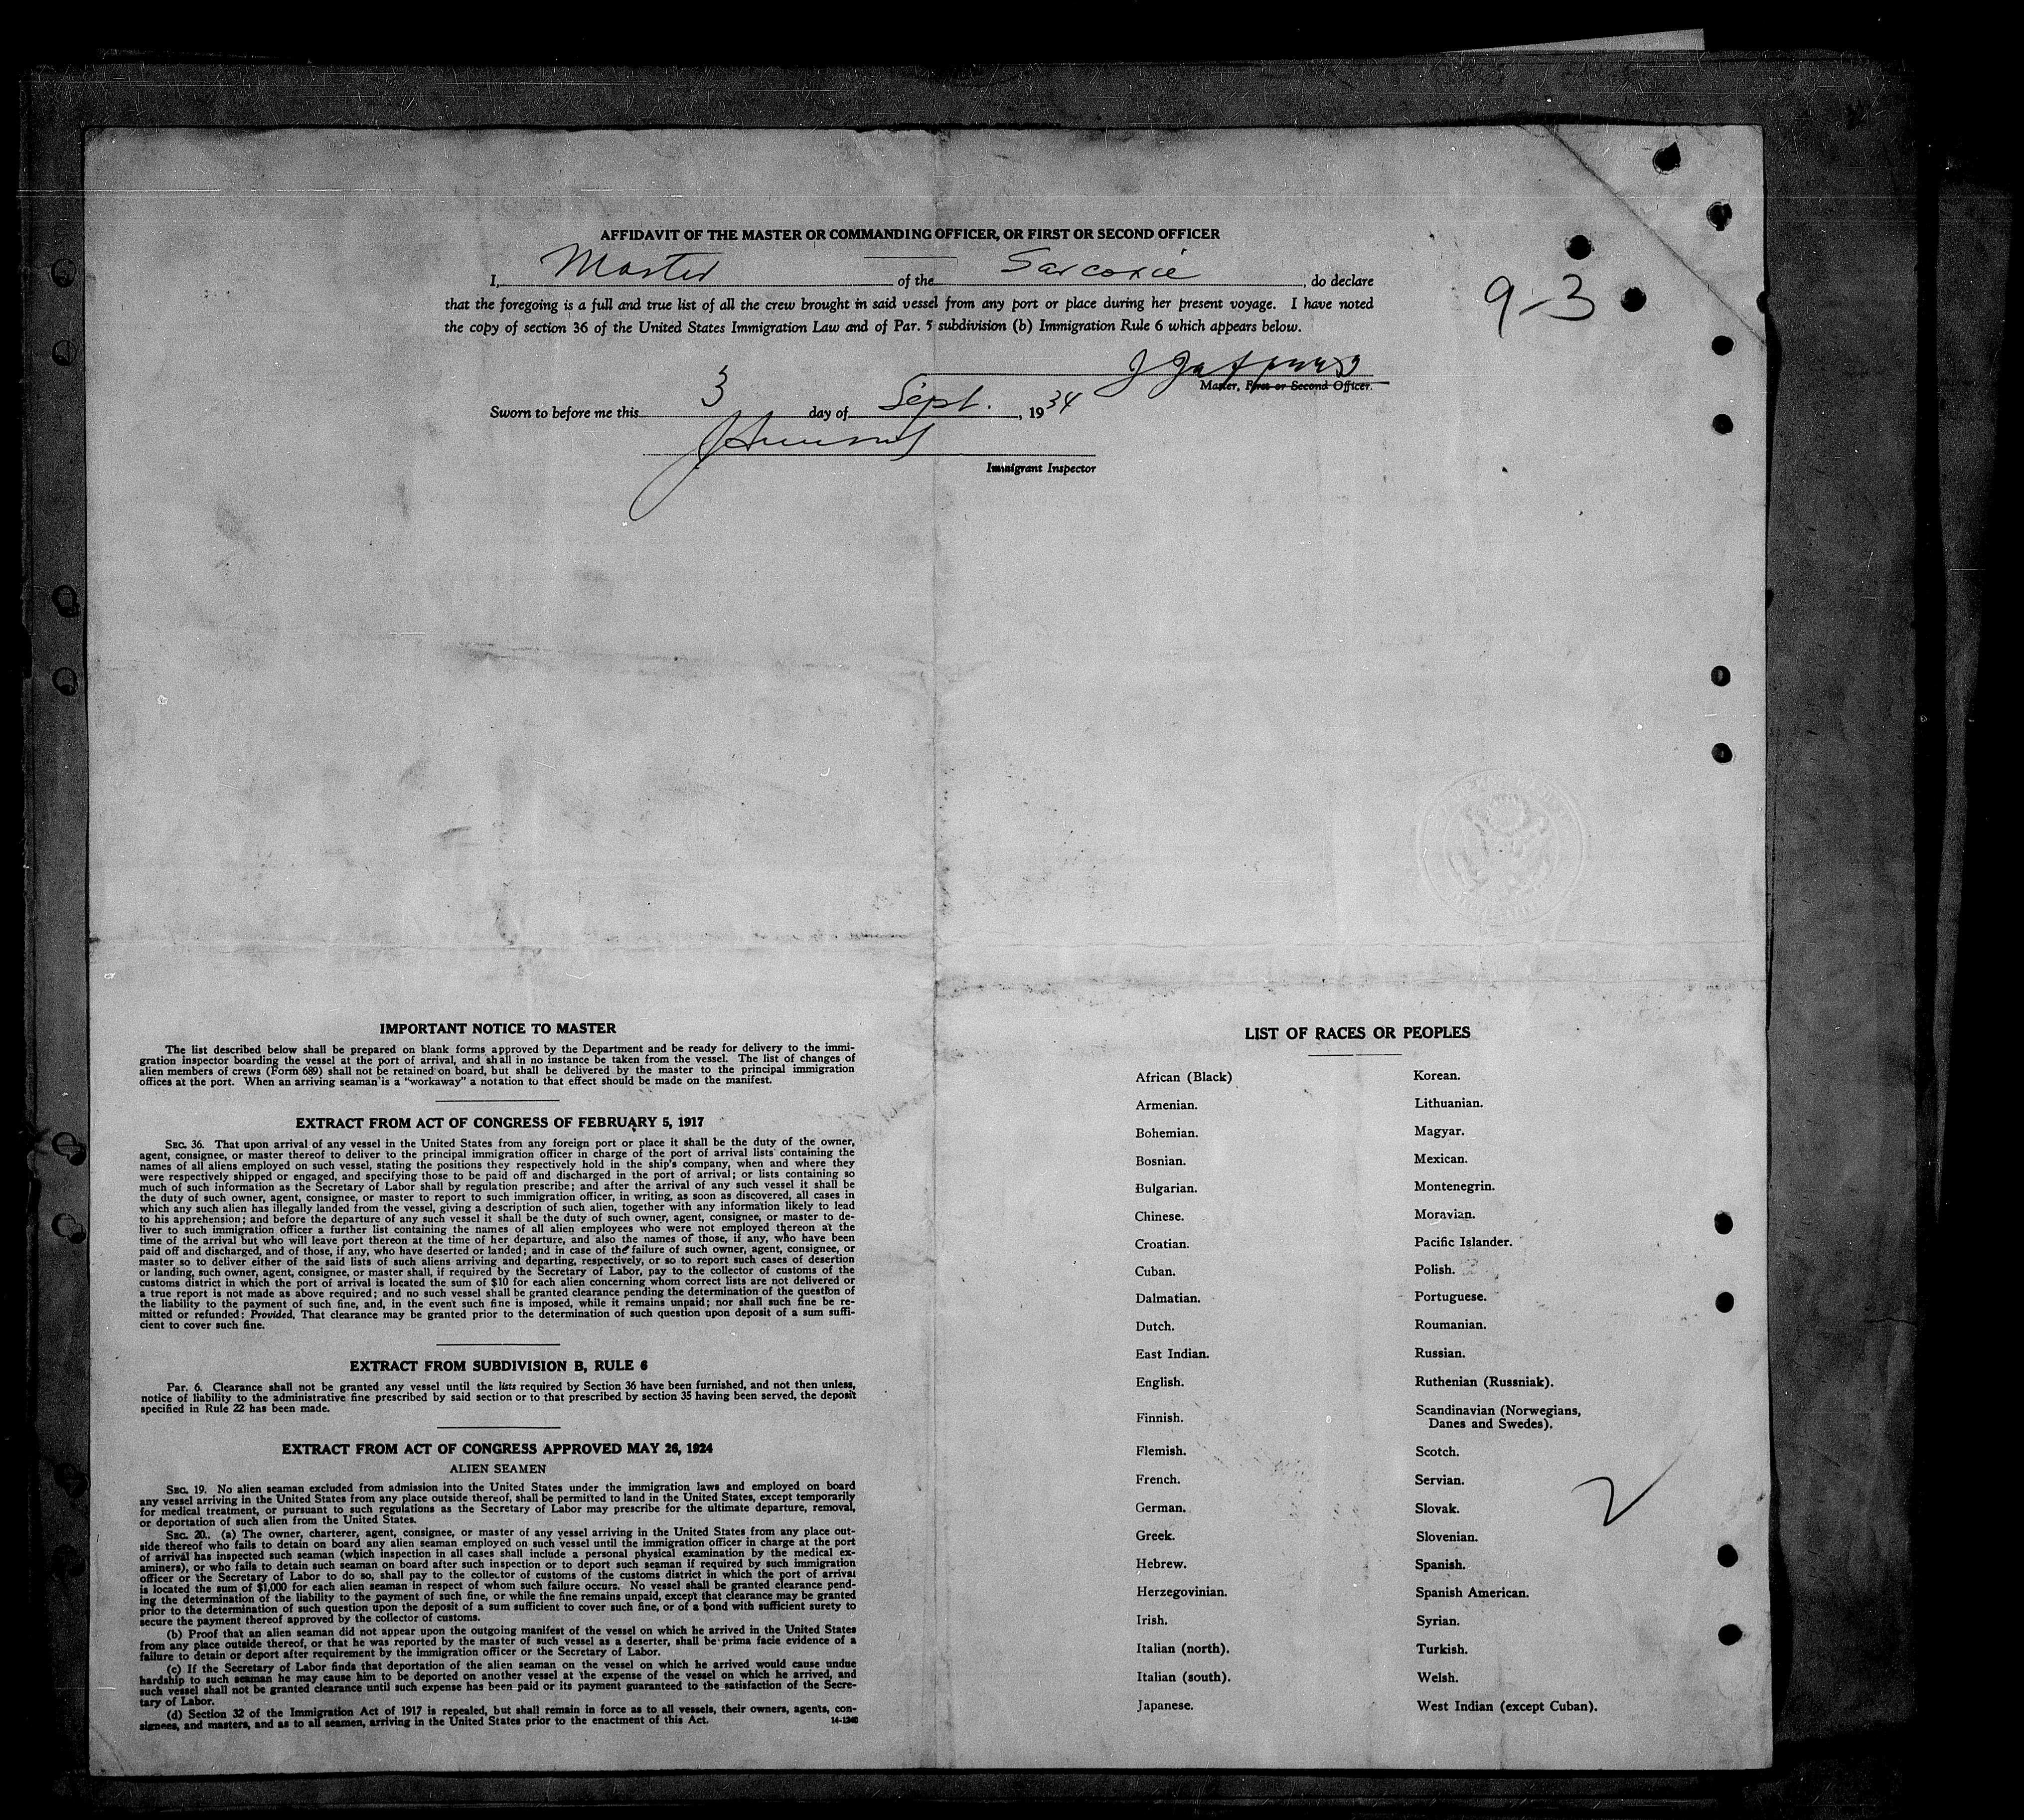 AFFIDAVIT OF THE MASTER OR COMMANDING OFFICER, OR FIRST OR SECOND OFFICER
I, Master of the Sarcoxie, do declare
that the foregoing is a full and true list of all the crew brought in said vessel from any port or place during her present voyage. I have noted
the copy of section 36 of the United States Immigration Law and of Par. 5 subdivision (b) Immigration Rule 6 which appears below.
9-3
Master, First or Second Officer.
Sworn to before me this 3 day of Sept., 1934
Immigrant Inspector
IMPORTANT NOTICE TO MASTER
The list described below shall be prepared on blank forms approved by the Department and be ready for delivery to the immi-
gration inspector boarding the vessel at the port of arrival, and shall in no instance be taken from the vessel. The list of changes of
alien members of crews (Form 689) shall not be retained on board, but shall be delivered by the master to the principal immigration
offices at the port. When an arriving seaman is a "workaway" a notation to that effect should be made on the manifest.
EXTRACT FROM ACT OF CONGRESS OF FEBRUARY 5, 1917
SEC. 36. That upon arrival of any vessel in the United States from any foreign port or place it shall be the duty of the owner,
agent, consignee, or master thereof to deliver to the principal immigration officer in charge of the port of arrival lists containing the
names of all aliens employed on such vessel, stating the positions they respectively hold in the ship's company, when and where they
were respectively shipped or engaged, and specifying those to be paid off and discharged in the port of arrival; or lists containing so
much of such information as the Secretary of Labor shall by regulation prescribe; and after the arrival of any such vessel it shall be
the duty of such owner, agent, consignee, or master to report to such immigration officer, in writing, as soon as discovered, all cases in
which any such alien has illegally landed from the vessel, giving a description of such alien, together with any information likely to lead
to his apprehension; and before the departure of any such vessel it shall be the duty of such owner, agent, consignee, or master to de-
liver to such immigration officer a further list containing the names of all alien employees who were not employed thereon at the
time of the arrival but who will leave port thereon at the time of her departure, and also the names of those, if any, who have been
paid off and discharged, and of those, if any, who have deserted or landed; and in case of the failure of such owner, agent, consignee, or
master so to deliver either of the said lists of such aliens arriving and departing, respectively, or so to report such cases of desertion
or landing, such owner, agent, consignee, or master shall, if required by the Secretary of Labor, pay to the collector of customs of the
customs district in which the port of arrival is located the sum of $10 for each alien concerning whom correct lists are not delivered or
a true report is not made as above required; and no such vessel shall be granted clearance pending the determination of the question of
the liability to the payment of such fine, and, in the event such fine is imposed, while it remains unpaid; nor shall such fine be re-
mitted or refunded: Provided, That clearance may be granted prior to the determination of such question upon deposit of a sum suffi-
cient to cover such fine.
EXTRACT FROM SUBDIVISION B, RULE 6
Par. 6. Clearance shall not be granted any vessel until the lists required by Section 36 have been furnished, and not then unless,
notice of liability to the administrative fine prescribed by said section or to that prescribed by section 35 having been served, the deposit
specified in Rule 22 has been made.
EXTRACT FROM ACT OF CONGRESS APPROVED MAY 26, 1924
ALIEN SEAMEN
SEC. 19. No alien seaman excluded from admission into the United States under the immigration laws and employed on board
any vessel arriving in the United States from any place outside thereof, shall be permitted to land in the United States, except temporarily
for medical treatment, or pursuant to such regulations as the Secretary of Labor may prescribe for the ultimate departure, removal,
or deportation of such alien from the United States.
SEC. 20.. (a) The owner, charterer, agent, consignee, or master of any vessel arriving in the United States from any place out-
side thereof who fails to detain on board any alien seaman employed on such vessel until the immigration officer in charge at the port
of arrival has inspected such seaman (which inspection in all cases shall include a personal physical examination by the medical ex-
aminers), or who fails to detain such seaman on board after such inspection or to deport such seaman if required by such immigration
officer or the Secretary of Labor to do so, shall pay to the collector of customs of the customs district in which the port of arrival
is located the sum of $1,000 for each alien seaman in respect of whom such failure occurs. No vessel shall be granted clearance pend-
ing the determination of the liability to the payment of such fine, or while the fine remains unpaid, except that clearance may be granted
prior to the determination of such question upon the deposit of a sum sufficient to cover such fine, or of a bond with sufficient surety to
secure the payment thereof approved by the collector of customs.
(b) Proof that an alien seaman did not appear upon the outgoing manifest of the vessel on which he arrived in the United States
from any place outside thereof, or that he was reported by the master of such vessel as a deserter, shall be prima facie evidence of a
failure to detain or deport after requirement by the immigration officer or the Secretary of Labor.
(c) If the Secretary of Labor finds that deportation of the alien seaman on the vessel on which he arrived would cause undue
hardship to such seaman he may cause him to be deported on another vessel at the expense of the vessel on which he arrived, and
such vessel shall not be granted clearance until such expense has been paid or its payment guaranteed to the satisfaction of the Secre-
tary of Labor.
(d) Section 32 of the Immigration Act of 1917 is repealed, but shall remain in force as to all vessels, their owners, agents, con-
signees, and masters, and as to all seamen, arriving in the United States prior to the enactment of this Act. 14-1240
LIST OF RACES OR PEOPLES
African (Black)
Armenian.
Bohemian.
Bosnian.
Bulgarian.
Chinese.
Croatian.
Cuban.
Dalmatian.
Dutch.
East Indian.
English.
Finnish.
Flemish.
French.
German.
Greek.
Hebrew.
Herzegovinian.
Irish.
Italian (north).
Italian (south).
Japanese.
Korean.
Lithuanian.
Magyar.
Mexican.
Montenegrin.
Moravian.
Pacific Islander.
Polish.
Portuguese.
Roumanian.
Russian.
Ruthenian (Russniak).
Scandinavian (Norwegians,
Danes and Swedes).
Scotch.
Servian.
Slovak.
Slovenian.
Spanish.
Spanish American.
Syrian.
Turkish.
Welsh.
West Indian (except Cuban).